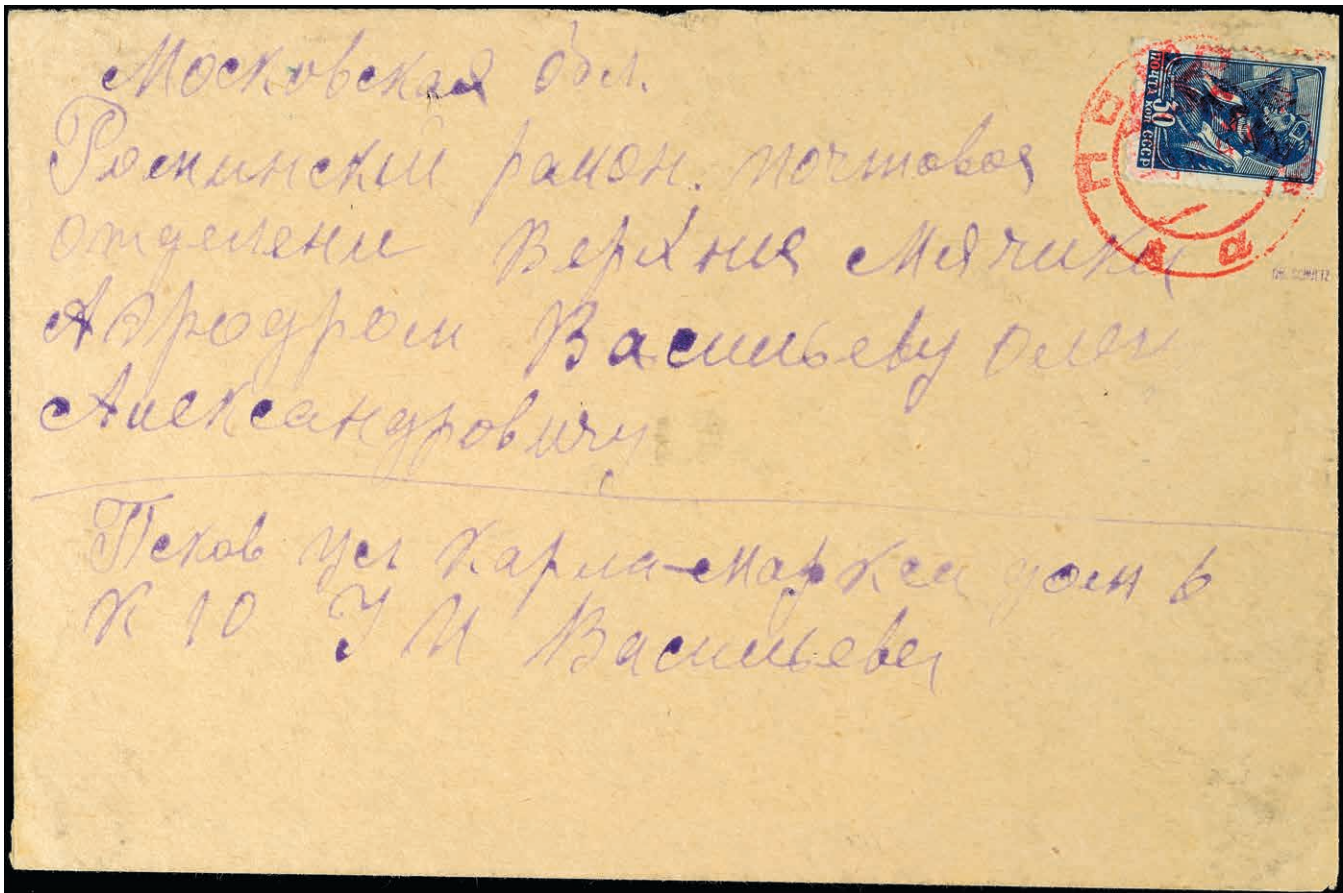 Московская обл.
Раминский район. почтовоя
отделени Верхния Мячики
Аэродром Васильеву Олегу
Александровичу
Псков ул Карла-Маркса дом 6
К 10 У И Васильева
ПОЧТА 30 КОП СССР
DR. SCHULTZ